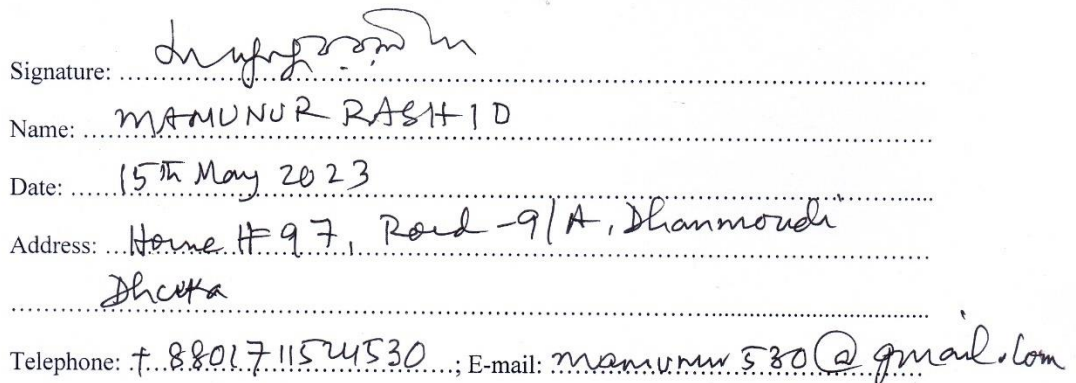 Signature:
Name: MAMUNUR RASHID
Date: 15th May 2023
Address: House # 97, Road -9/A, Dhanmondi
Dhaka
Telephone: +8801711524530; E-mail: mamunur530@gmail.com